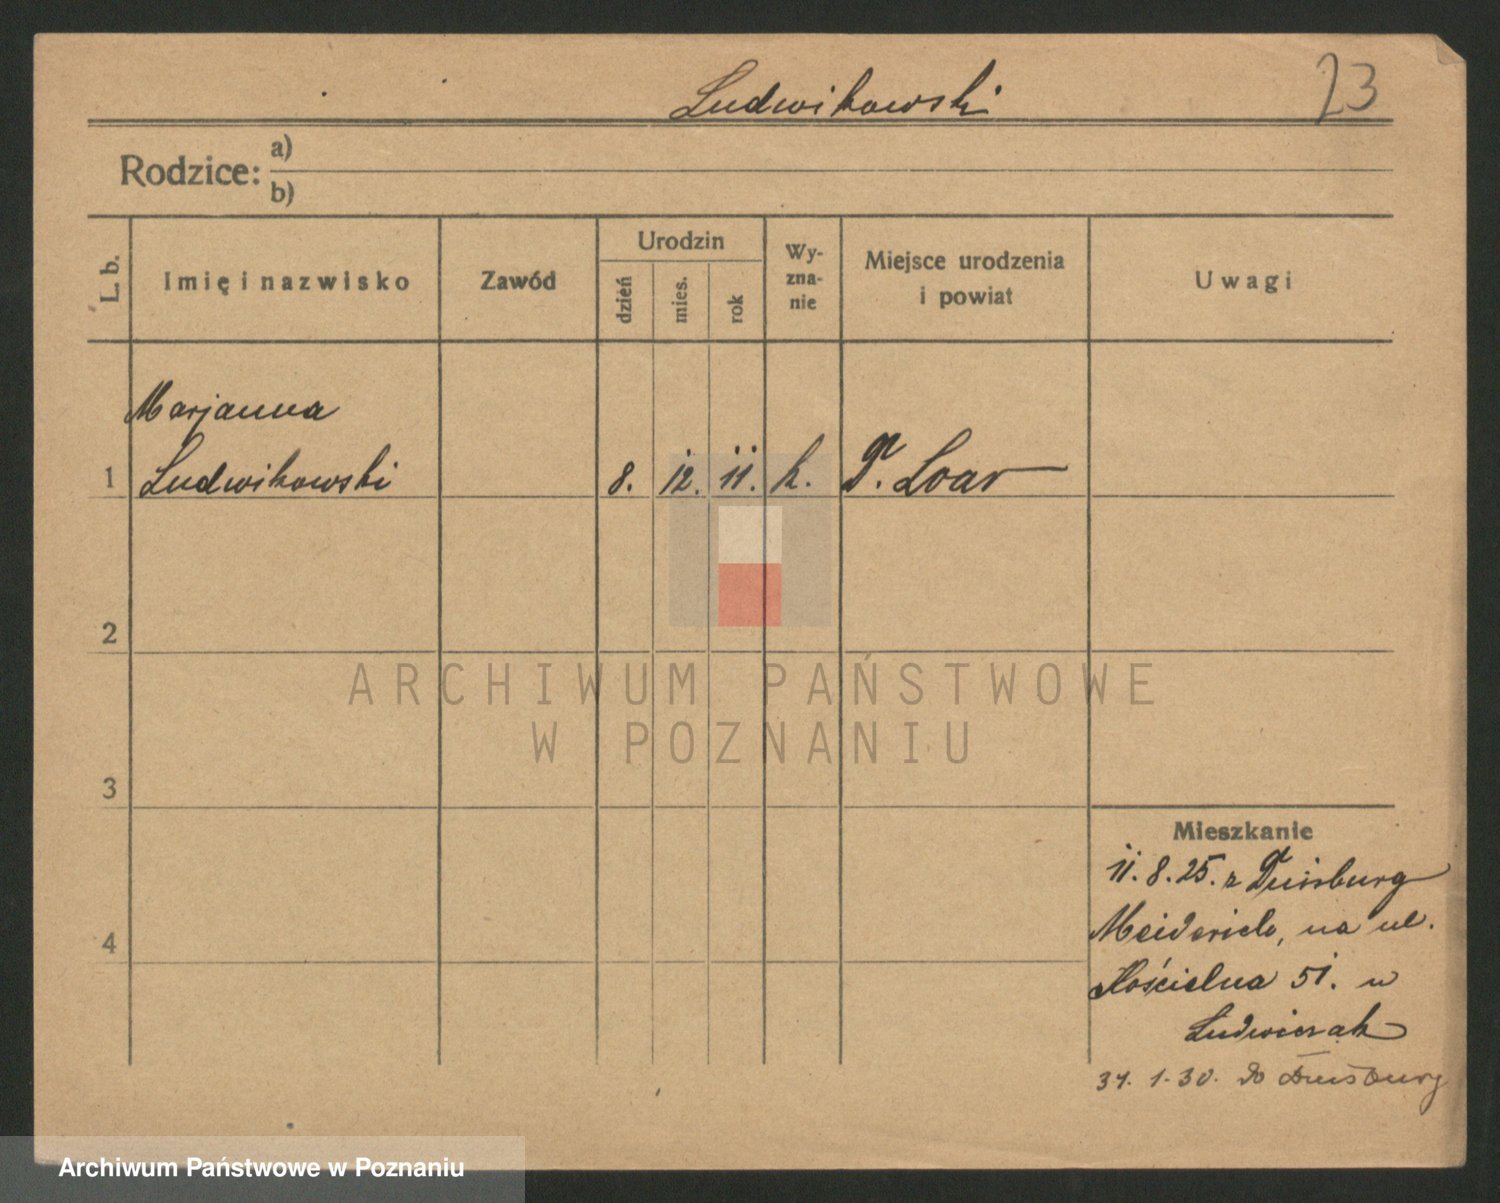 Ludwikowski
23
Rodzice: a)
b)
L. b.
Imię i nazwisko
Zawód
Urodzin
dzień
mies.
rok
Wy-
zna-
nie
Miejsce urodzenia
i powiat
Uwagi
Marjanna
1 Ludwikowski 8. 12. 11. k. Loar
2
3
4
Mieszkanie
11. 8. 25. z Duisburg
Meiderich, na ul.
Kościelna 51. u
Ludwiczak
1. 30. do Duisburg
ARCHIWUM PAŃSTWOWE
W POZNANIU
Archiwum Państwowe w Poznaniu